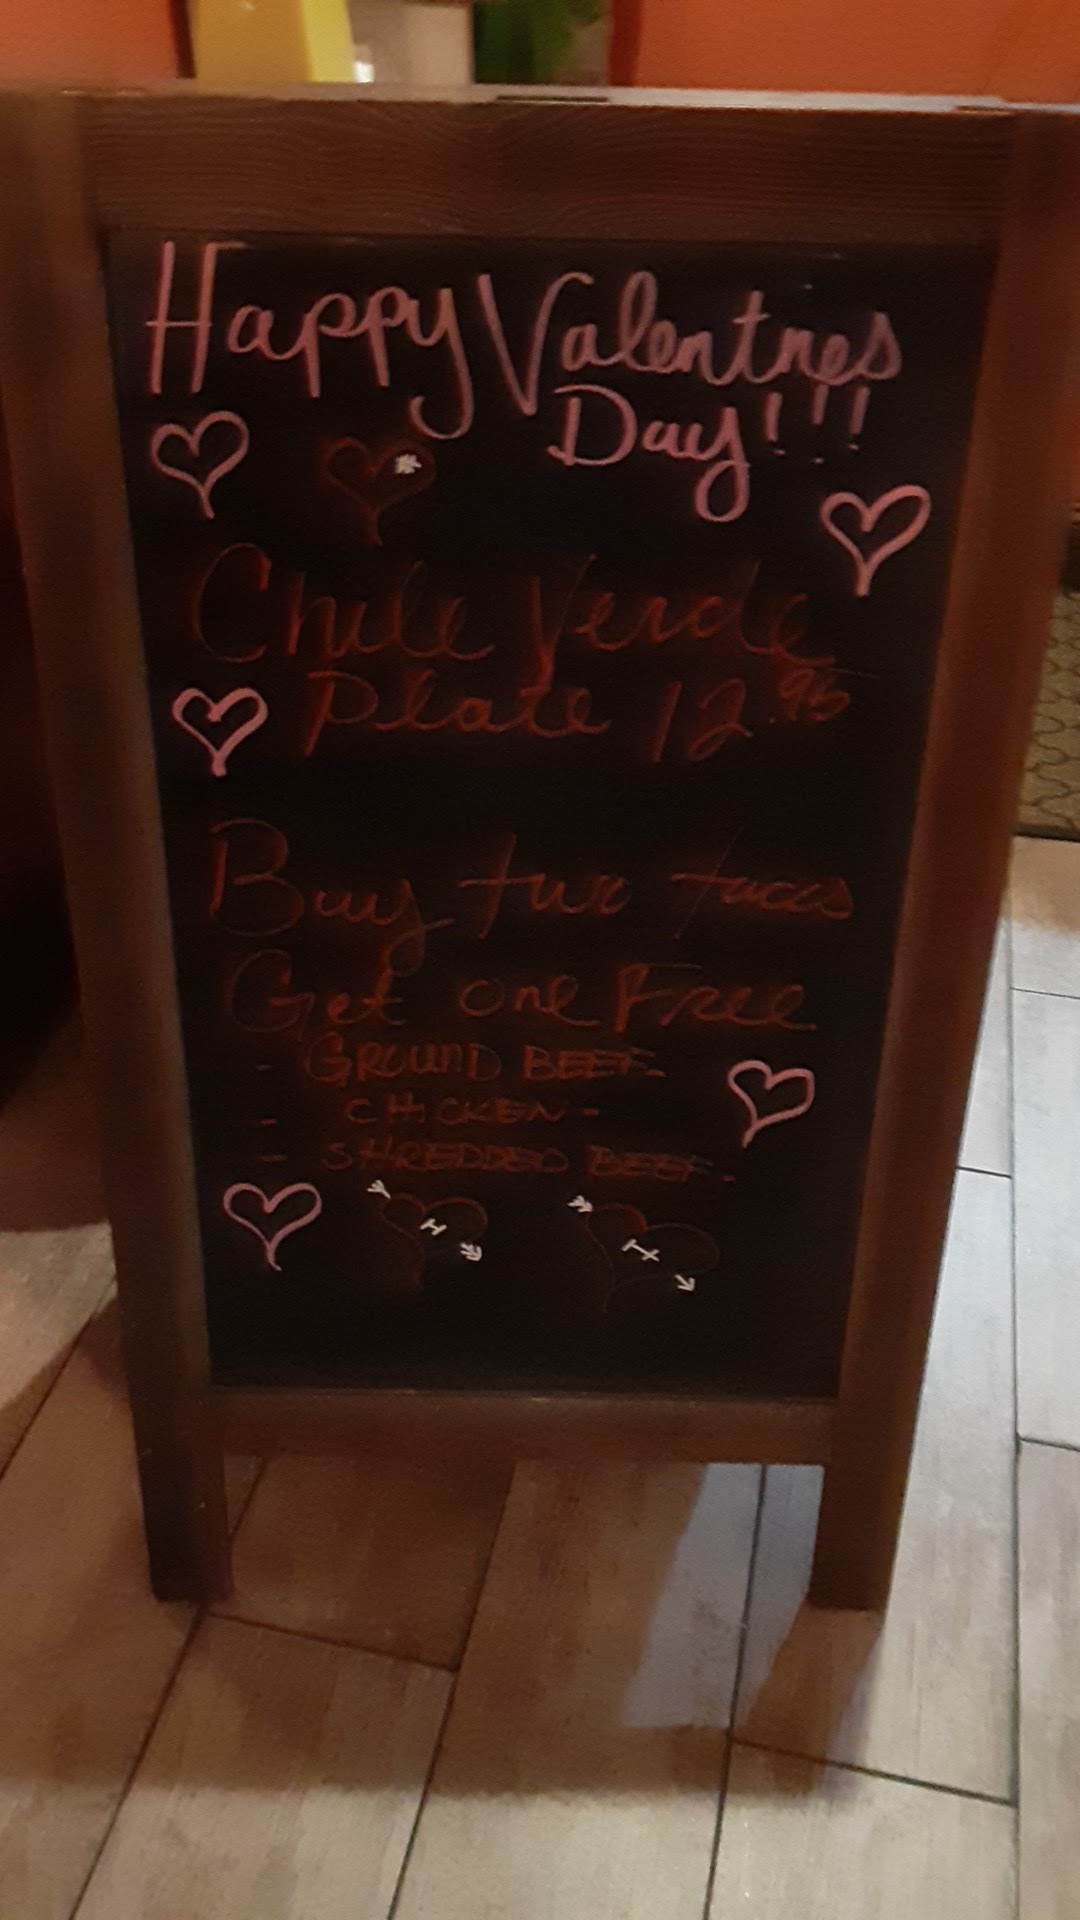 Happy Valentines
Day!!!
Chile Verde
Plate 12.95
Buy two tacos
Get one Free
- GROUND BEEF -
- CHICKEN -
- SHREDDED BEEF -